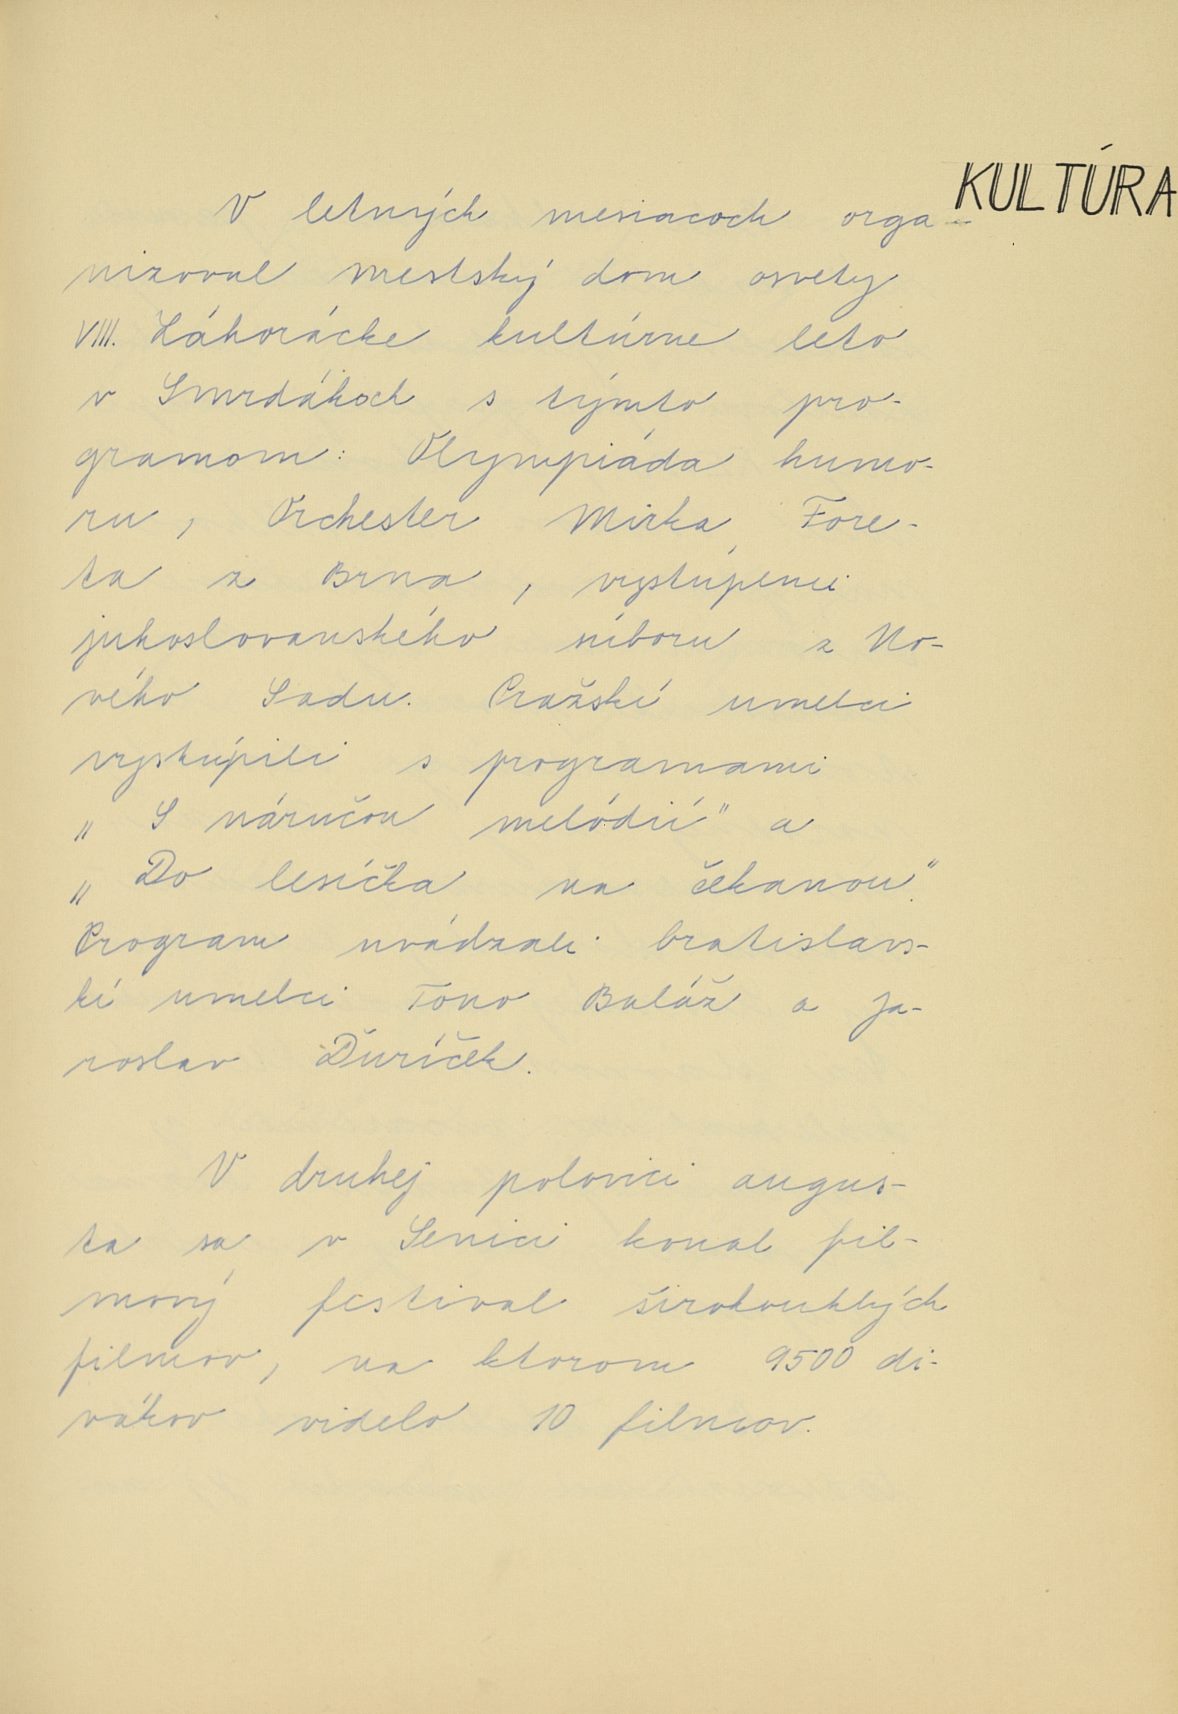 KULTÚRA
V letných mesiacoch orga-
nizoval mestský dom osvety
VIII. Záhorácke kultúrne leto
v Smrdákoch s týmto pro-
gramom: Olympiáda humo-
ru, Orchester Mirka Fore-
ta z Brna, vystúpenie
juhoslovanského súboru z No-
vého Sadu. Pražskí umelci
vystúpili s programami
„S náručou melódií" a
„Do lesíčka na čekanou".
Program uvádzali bratislavs-
kí umelci Tono Baláž a Ja-
roslav Ďuríček.
V druhej polovici augus-
ta sa v Senici konal fil-
mový festival širokouhlých
filmov, na ktorom 9500 di-
vákov videlo 10 filmov.